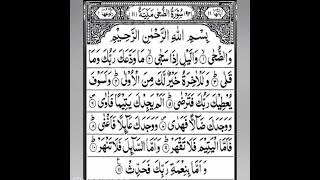 سُوْرَةُ الضُّحٰى مَكِّيَّةٌ
بِسْمِ اللّٰهِ الرَّحْمٰنِ الرَّحِيْمِ
وَالضُّحٰى ۙ﴿۱﴾ وَالَّيْلِ اِذَا سَجٰى ۙ﴿۲﴾ مَا وَدَّعَكَ رَبُّكَ وَمَا
قَلٰى ؕ﴿۳﴾ وَلَلْاٰخِرَةُ خَيْرٌ لَّكَ مِنَ الْاُوْلٰى ؕ﴿۴﴾ وَلَسَوْفَ
يُعْطِيْكَ رَبُّكَ فَتَرْضٰى ؕ﴿۵﴾ اَلَمْ يَجِدْكَ يَتِيْمًا فَاٰوٰى ۪﴿۶﴾
وَوَجَدَكَ ضَآلًّا فَهَدٰى ۪﴿۷﴾ وَوَجَدَكَ عَآئِلًا فَاَغْنٰى ؕ﴿۸﴾
فَاَمَّا الْيَتِيْمَ فَلَا تَقْهَرْ ؕ﴿۹﴾ وَاَمَّا السَّآئِلَ فَلَا تَنْهَرْ ؕ﴿۱۰﴾
وَاَمَّا بِنِعْمَةِ رَبِّكَ فَحَدِّثْ ﴿۱۱﴾